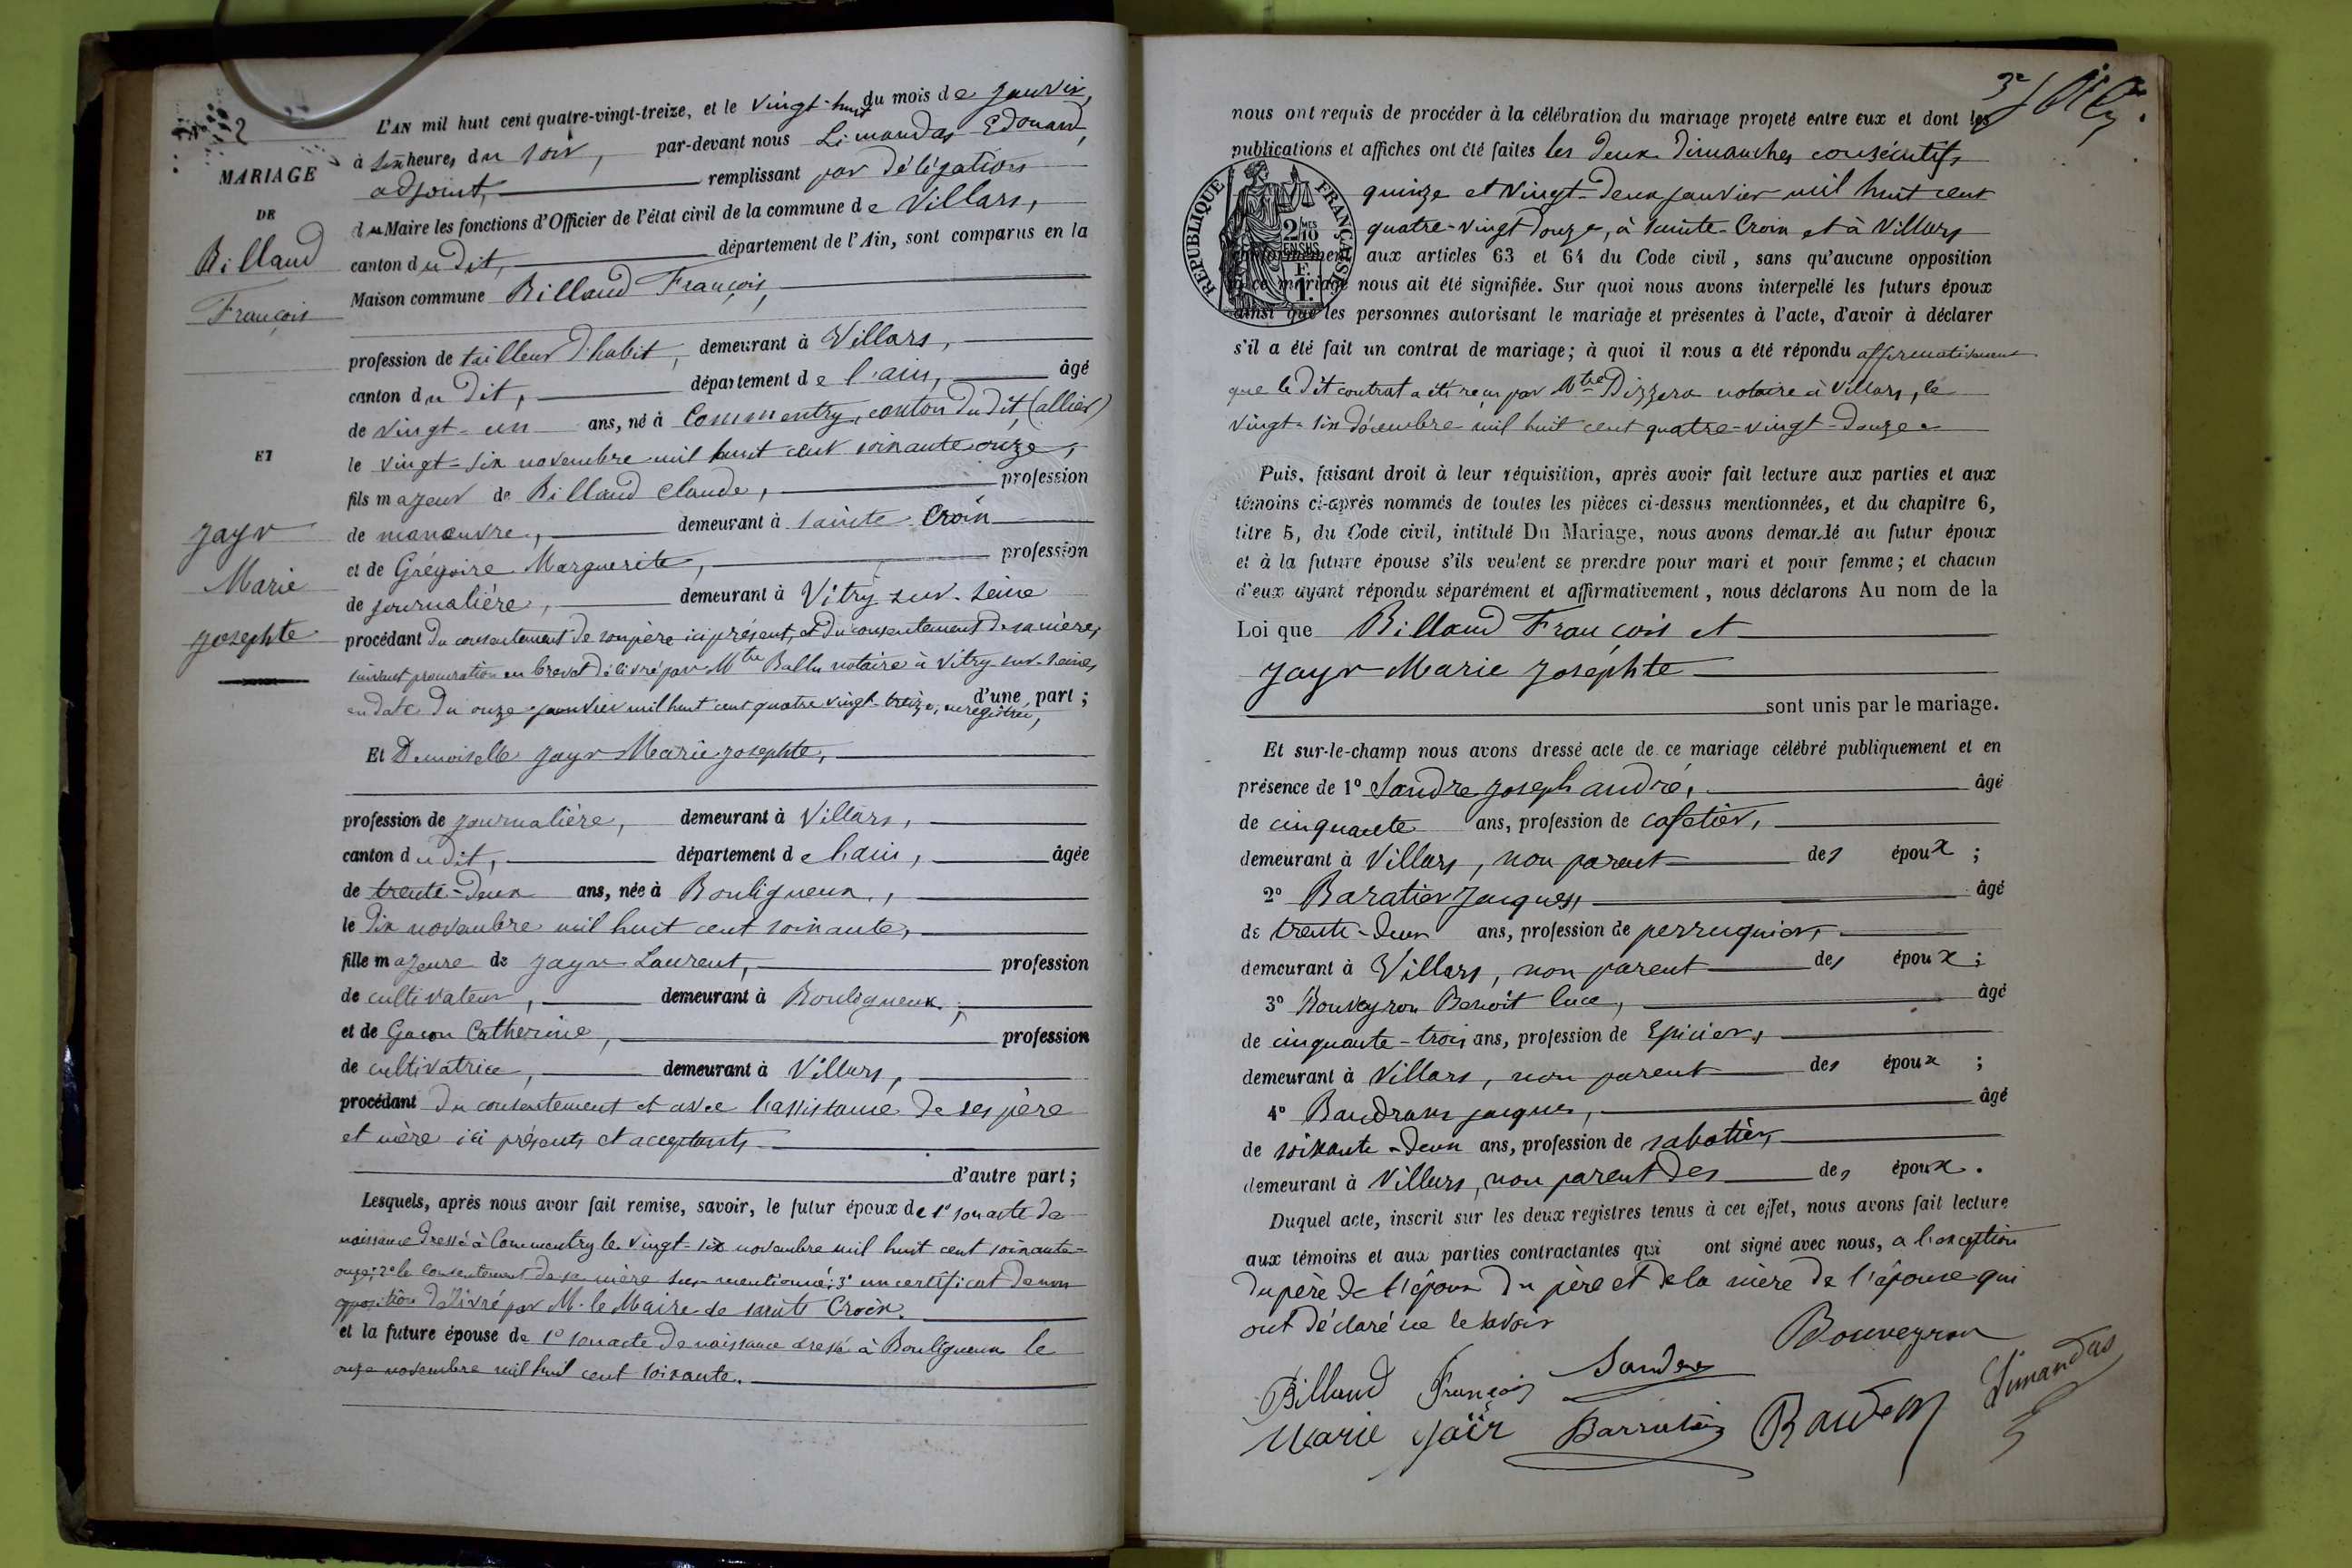 2
MARIAGE
DE
Billaud
François
ET
Jayr
Marie
Josephte
L'AN mil huit cent quatre-vingt-treize, et le vingt-huit du mois de Janvier,
à six heures du soir, par-devant nous Limandas Edouard,
adjoint, remplissant par délégation
du Maire les fonctions d'Officier de l'état civil de la commune de Villars,
canton du dit, département de l'Ain, sont comparus en la
Maison commune Billaud François,
profession de tailleur d'habit, demeurant à Villars,
canton du dit, département de l'ain, âgé
de vingt-un ans, né à Commentry, canton du dit, (allier)
le vingt-six novembre mil huit cent soixante onze,
fils majeur de Billaud Claude, profession
de manœuvre, demeurant à Sainte Croix
et de Grégoire Marguerite, profession
de journalière, demeurant à Vitry sur-Seine
procédant du consentement de son père ici présent, et du consentement de sa mère,
suivant procuration en brevet délivré par Mtre Ballu notaire à Vitry-sur-Seine,
en date du onze janvier mil huit cent quatre vingt-treize, enregistrée, d'une part ;
Et Demoiselle Jayr Marie Josephte,
profession de journalière, demeurant à Villars,
canton du dit, département de l'ain, âgée
de trente-deux ans, née à Bouligneux,
le dix novembre mil huit cent soixante,
fille majeure de Jayr Laurent, profession
de cultivateur, demeurant à Bouligneux ;
et de Gacon Catherine, profession
de cultivatrice, demeurant à Villars,
procédant du consentement et avec l'assistance de ses père
et mère ici présents et acceptants
d'autre part ;
Lesquels, après nous avoir fait remise, savoir, le futur époux de 1° son acte de
naissance dressé à Commentry le vingt-six novembre mil huit cent soixante-
onze; 2° le consentement de sa mère sus-mentionné; 3° un certificat de non
opposition délivré par M. le Maire de sainte Croix.
et la future épouse de 1° son acte de naissance dressé à Bouligneux le
onze novembre mil huit cent soixante.
3e
nous ont requis de procéder à la célébration du mariage projeté entre eux et dont les
publications et affiches ont été faites les deux Dimanches consécutifs
quinze et vingt-deux janvier mil huit cent
quatre-vingt douze, à Sainte-Croix et à Villars
conformément aux articles 63 et 64 du Code civil, sans qu'aucune opposition
à ce mariage nous ait été signifiée. Sur quoi nous avons interpellé les futurs époux
ainsi que les personnes autorisant le mariage et présentes à l'acte, d'avoir à déclarer
s'il a été fait un contrat de mariage; à quoi il nous a été répondu affirmativement
que le dit contrat a été reçu par Mtre Dizzera notaire à Villars, le
vingt-six décembre mil huit cent quatre-vingt-douze
RÉPUBLIQUE FRANÇAISE
2/10MES
EN SUS
1F.
Puis, faisant droit à leur réquisition, après avoir fait lecture aux parties et aux
témoins ci-après nommés de toutes les pièces ci-dessus mentionnées, et du chapitre 6,
titre 5, du Code civil, intitulé Du Mariage, nous avons demandé au futur époux
et à la future épouse s'ils veulent se prendre pour mari et pour femme; et chacun
d'eux ayant répondu séparément et affirmativement, nous déclarons Au nom de la
Loi que Billaud François et
Jayr Marie Josephte
sont unis par le mariage.
Et sur-le-champ nous avons dressé acte de ce mariage célébré publiquement et en
présence de 1° Sandre Joseph andré, âgé
de cinquante ans, profession de cafetier,
demeurant à Villars, non parent des époux ;
2° Baratier Jacques, âgé
de trente-deux ans, profession de perruquier,
demeurant à Villars, non parent des époux ;
3° Bouveyron Benoit Luce, âgé
de cinquante-trois ans, profession de Epicier,
demeurant à Villars, non parent des époux ;
4° Baudrans Jacques, âgé
de soixante-deux ans, profession de sabotier,
demeurant à Villars, non parent des des époux.
Duquel acte, inscrit sur les deux registres tenus à cet effet, nous avons fait lecture
aux témoins et aux parties contractantes qui ont signé avec nous, a l'exception
du père de l'époux du père et de la mère de l'épouse qui
ont déclaré ne le savoir
Bouveyron
Billaud François Sandre Limandas
Marie Jaÿr Barratier